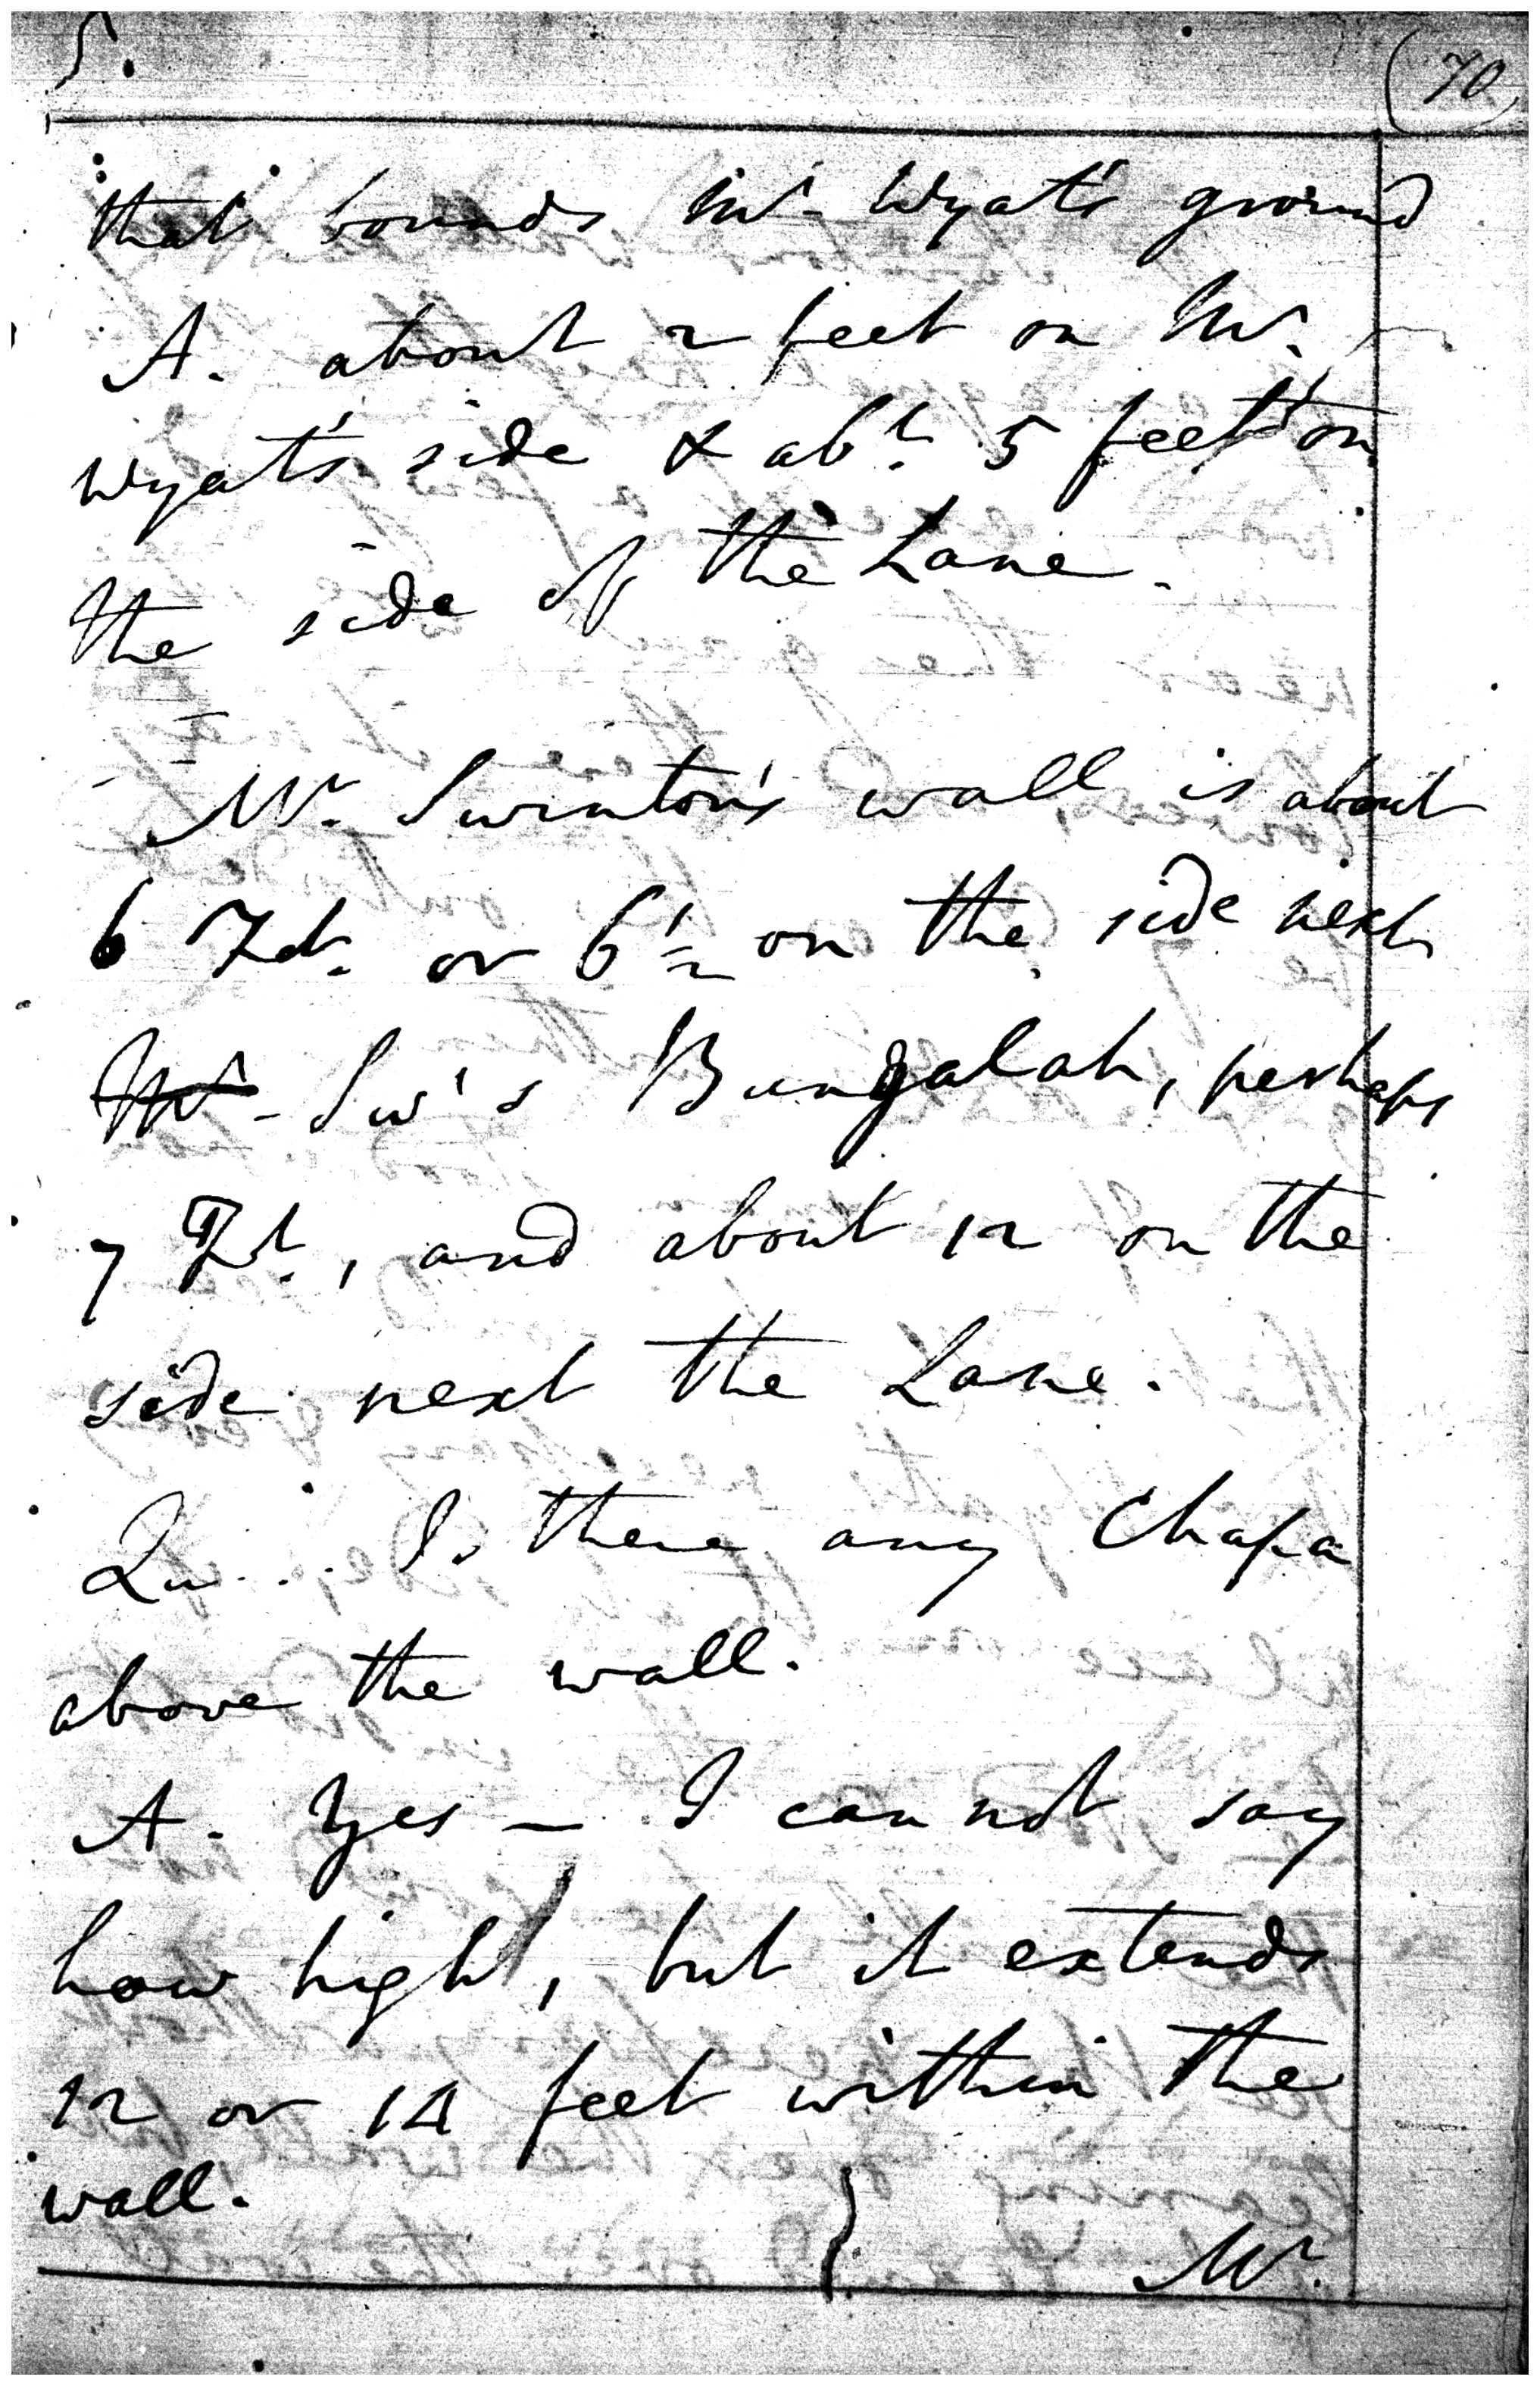 5.
(70)
that bounds Mr. Wyat's ground
A. about 2 feet on Mr.
Wyat's side & abt. 5 feet on
the side of the Lane.
Mr. Swinton's wall is about
6 Ft. or 6 1/2 on the side next
Mr. Sw's Bungalah, perhaps
7 Ft., and about 12 on the
side next the Lane.
Qu... Is there any Chapa
above the wall.
A. Yes — I can not say
how high, but it extends
12 or 14 feet within the
wall.
Mr.